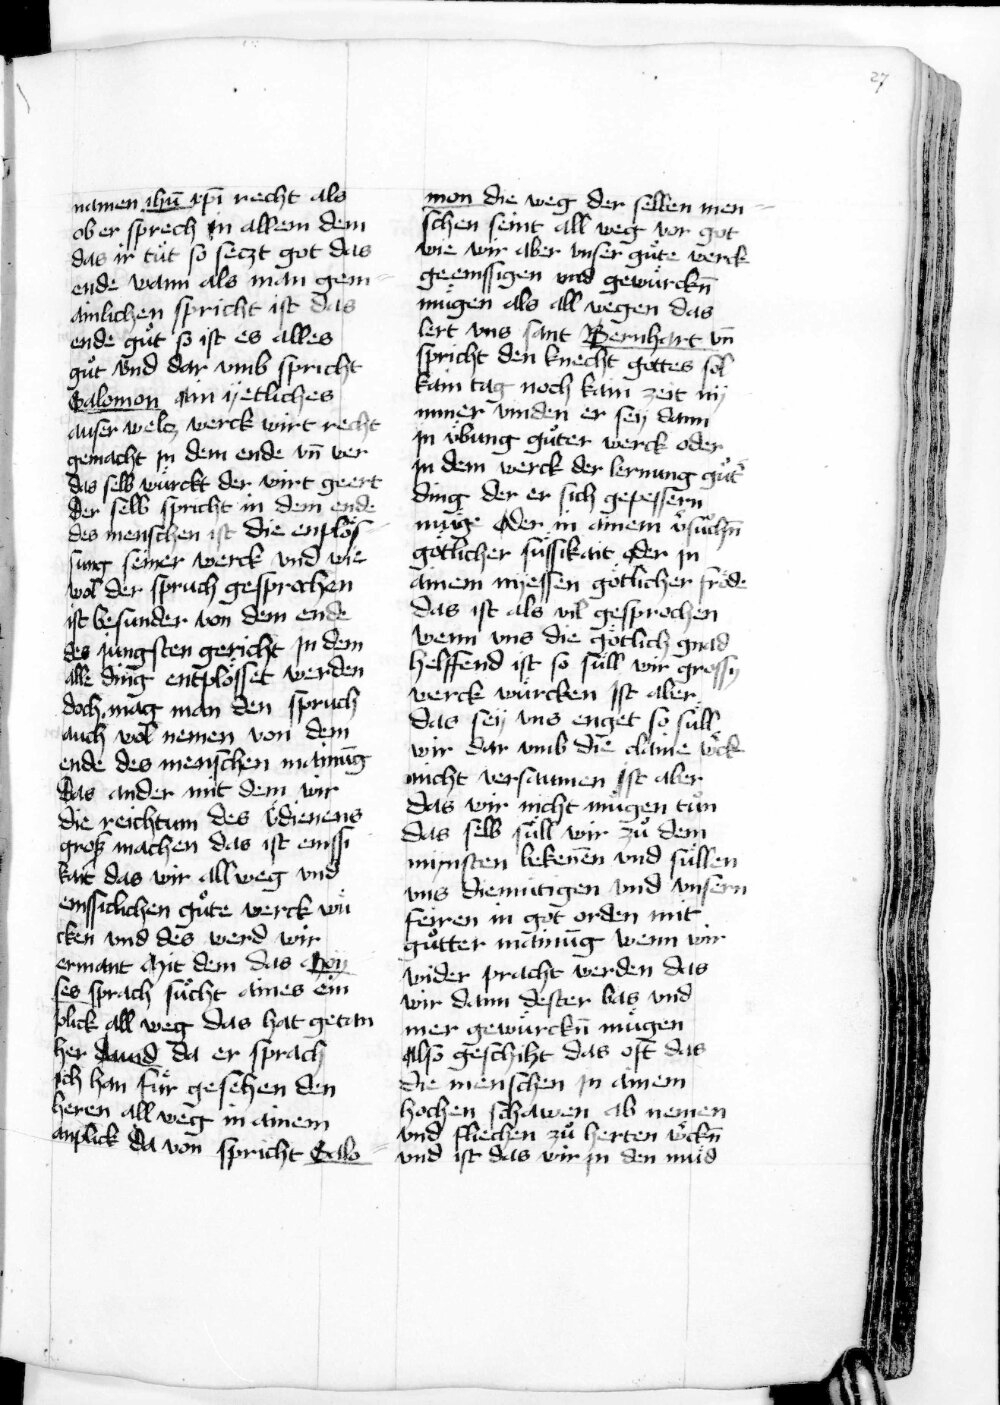 27
namen ihū xpī recht als
ob er sprech in allem dem
das ir tüt so seczt got das
ende wann als man gem=
ainlichen spricht ist das
ende gůt so ist es alles
gůt vnd dar vmb spricht
Salomon Ain iyetliches
auser welcz werck wirt recht
gemacht in dem ende vn̄ wer
das selb würckt der wirt geert
Der selb spricht in dem ende
des menschen ist die enplös=
sung seiner werck vnd wie
wol der spruch gesprochen
ist besunder von dem ende
des jüngsten gericht In dem
alle ding entplösset werden
doch mag man den spruch
auch wol nemen von dem
ende des menschen mainūg
Das ander mit dem wir
die reichtum des v̓dienens
groß machen das ist emssi
kait das wir allweg vnd
emssiclichen gůte werck wü
cken vnd des werd wir
ermant Mit dem das Moy
ses sprach sůcht aines em
plick all weg das hat getan
her Dauid da er sprach
ich han für gesehen den
heren all weg in ainem
anplick Da von spricht Salo=
mon die weg der selben men=
schen seint all weg vor got
wie wir aber vnser gůte werck
geemssigen vnd gewürckn̄
mügen als all wegen das
lert vns sant Bernhart vn̄
spricht den knecht gottes sol
kain tag noch kain zeit ny
mmer vinden er sey dann
in v̈bung gůter werck oder
in dem werck der lernung gůt̓
ding der er sich gepessern
müge Oder in ainem v̓süchn̄
götlicher süssikait oder in
ainem nyessen götlicher fröde
das ist als vil gesprochen
wenn vns die götlich gnad
helffend ist so süll wir grossy
werck würcken Ist aber
das sey vns enget so süll
wir dar vmb die claine w̓ck
nicht versaumen Ist aber
das wir nicht mügen tůn
das selb süll wir zů dem
mynsten bekenēn vnd süllen
vns diemütigen vnd vnsern
feiren in got orden mit
gůtter mainūg wenn wir
wider pracht werden das
wir dann dester bas vnd
mer gewürckn̄ mügen
Also geschiht das oft das
die menschen in ainem
hochen schawen ab nemen
vnd fliechen zů herten w̓ckn̄
vnd ist das wir in den müd